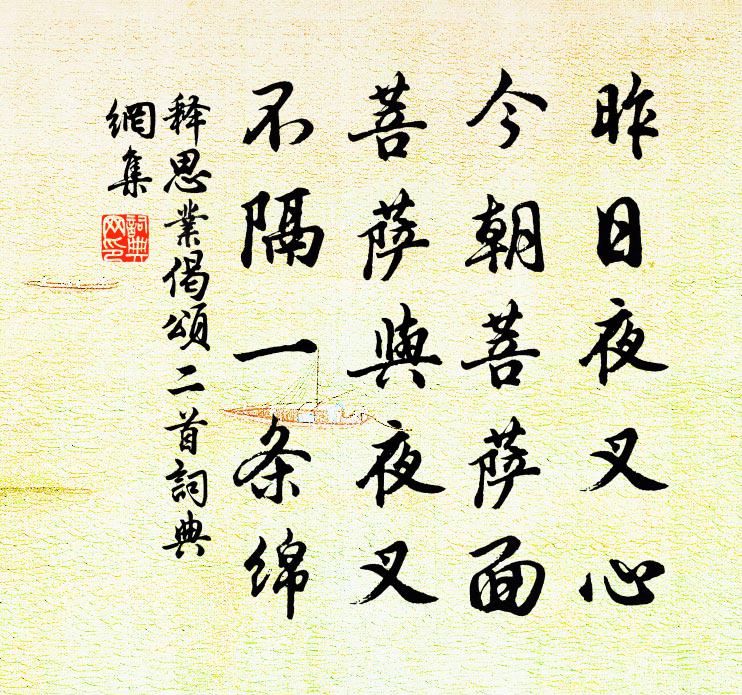 昨日夜叉心
今朝菩萨面
菩萨與夜叉
不隔一条绵
释思業偈頌二首詞典
網集
詞典
网印